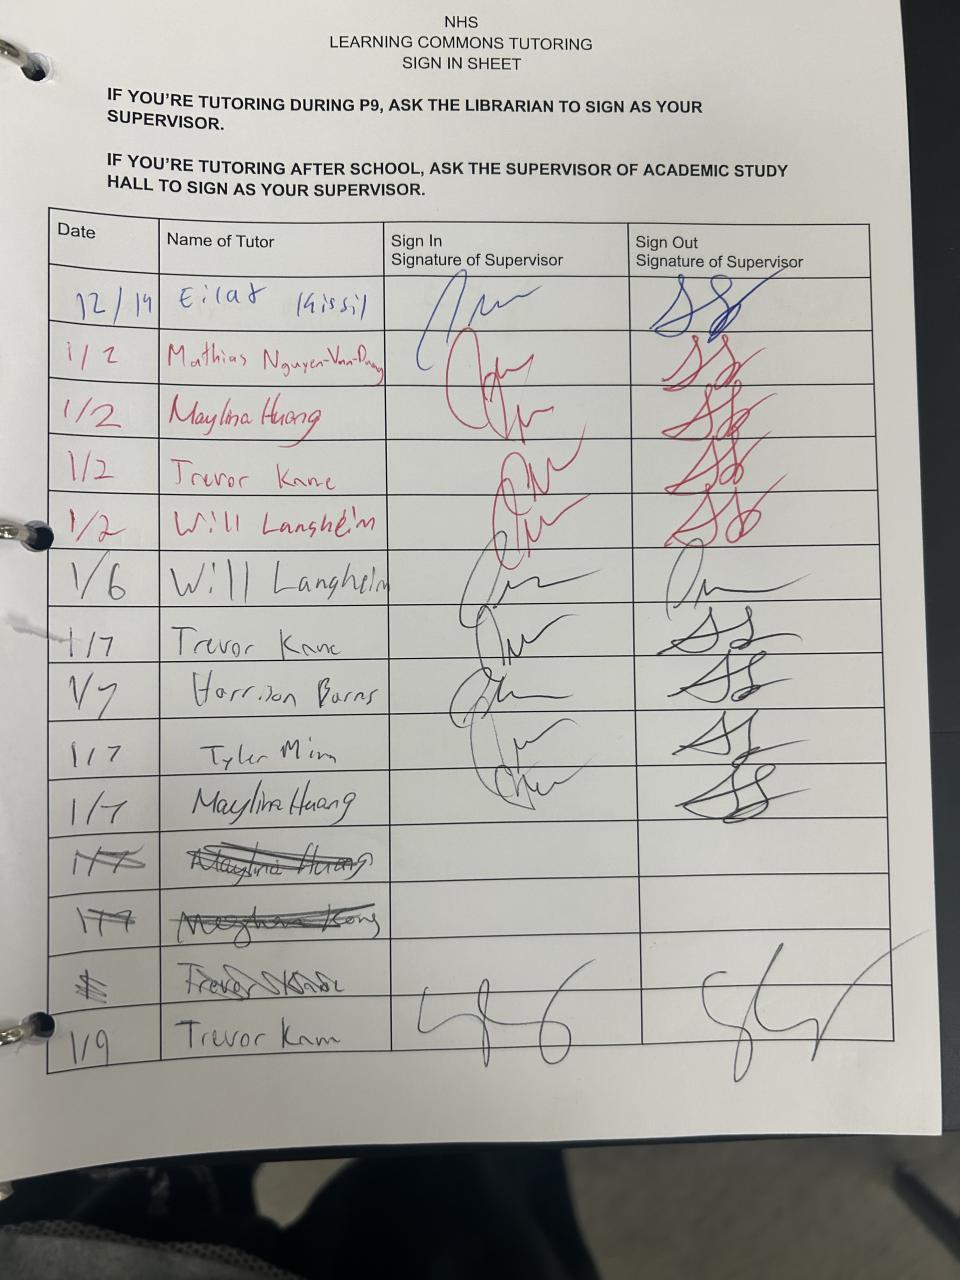 NHS
LEARNING COMMONS TUTORING
SIGN IN SHEET
IF YOU'RE TUTORING DURING P9, ASK THE LIBRARIAN TO SIGN AS YOUR
SUPERVISOR.
IF YOU'RE TUTORING AFTER SCHOOL, ASK THE SUPERVISOR OF ACADEMIC STUDY
HALL TO SIGN AS YOUR SUPERVISOR.
Date Name of Tutor Sign In Sign Out
Signature of Supervisor Signature of Supervisor
12/19 Eilat Kissil
1/2 Mathias Nguyen-Van-Duong
1/2 Maylina Huang
1/2 Trevor Kane
1/2 Will Langheim
1/6 Will Langheim
1/7 Trevor Kane
1/7 Harrison Barns
1/7 Tyler Mim
1/7 Maylina Huang
1/7 Maylina Huang
1/7 Meghan Kong
Trevor Kane
1/9 Trevor Kane